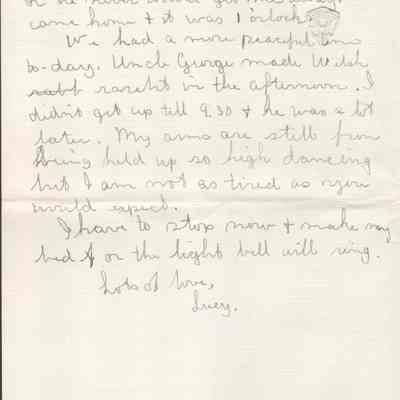 came home & it was 1 o'clock.
We had a more peaceful time
to-day. Uncle George made Welsh
rarebit in the afternoon. I
didn't get up till 9.30 & he was a lot
later. My arms are still from
being held up so high dancing
but I am not as tired as you
would expect.
I have to stop now & make my
bed or the light bell will ring.
Lots of love,
Lucy.